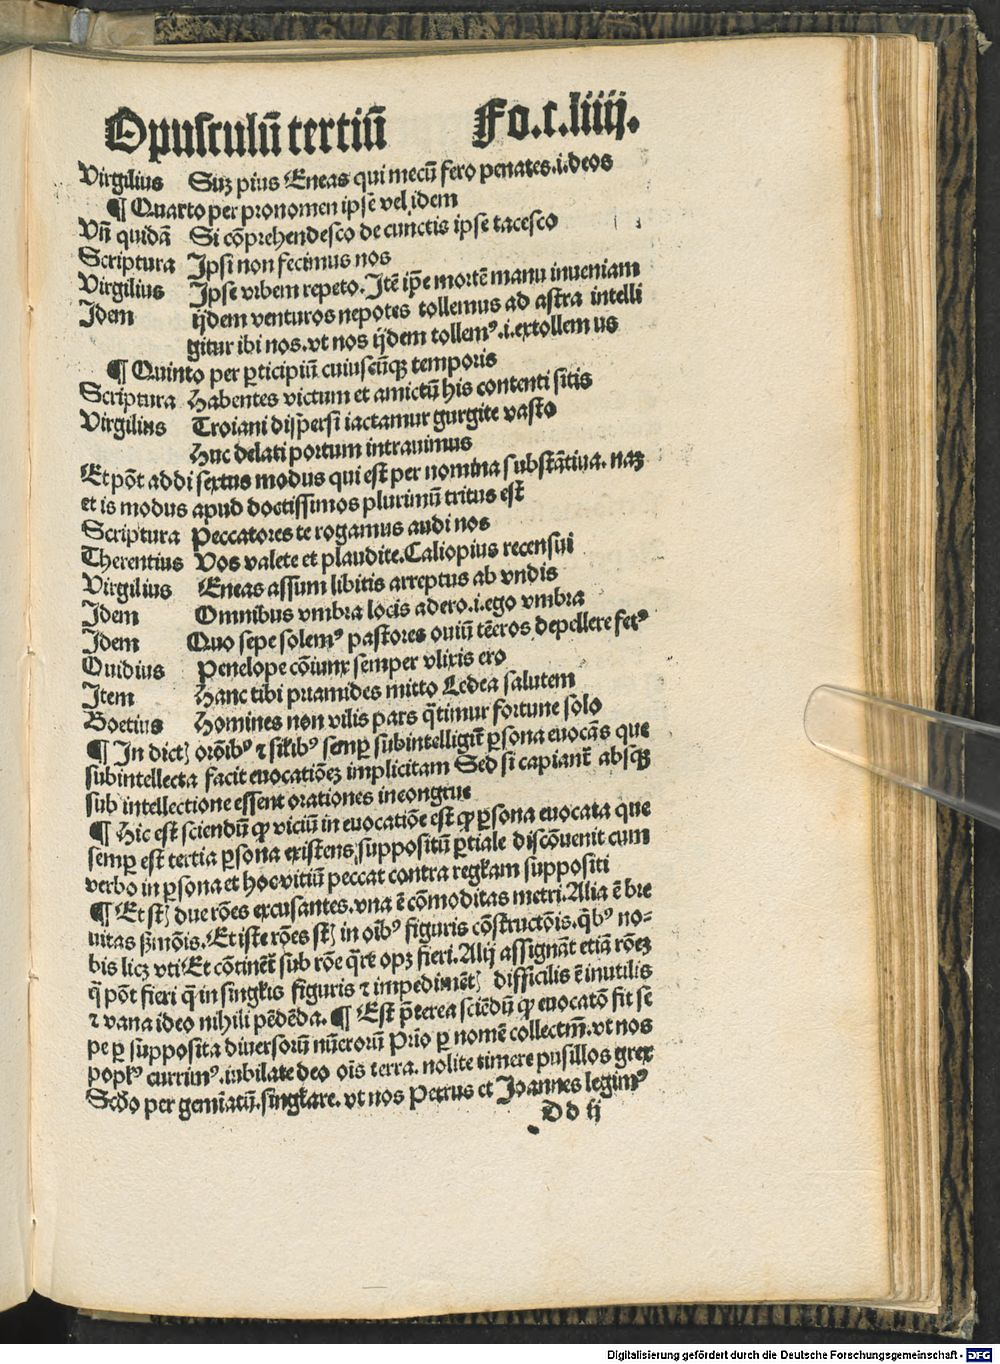 Opusculū tertiū Fo.c.liiij.
Virgilius Suʒ pius Eneas qui mecū fero penates.i.deos
¶ Quarto per pronomen ipse vel idem
Vñ quidā Si cōprehendesco de cunctis ipse tacesco
Scriptura Ipsi non fecimus nos
Virgilius Ipse vrbem repeto. Itē ip̄e mortē manu inueniam
Idem ijdem venturos nepotes tollemus ad astra intelli
gitur ibi nos.vt nos ijdem tollemꝰ.i.extollem us
¶ Quinto per ꝑticipiū cuiuscūqʒ temporis
Scriptura Habentes victum et amictū his contenti sitis
Virgilius Troiani dispersi iactamur gurgite vasto
Huc delati portum intrauimus
Et pōt addi sextus modus qui est per nomina substātiua. naʒ
et is modus apud doctissimos plurimū tritus est
Scriptura Peccatores te rogamus audi nos
Therentius Vos valete et plaudite.Caliopius recensui
Virgilius Eneas assum libitis arreptus ab vndis
Idem Omnibus vmbra locis adero.i.ego vmbra
Idem Quo sepe solemꝰ pastores ouiū tēeros depellere fetꝰ
Ouidius Penelope cōiunx semper vlixis ero
Item Hanc tibi priamides mitto Ledea salutem
Boetius Homines non vilis pars q̄timur fortune solo
¶ In dictꝭ orōibꝰ ⁊ sil̄ibꝰ semꝑ subintelligit̄ ꝑsona euocās que
subintellecta facit euocatiōeʒ implicitam Sed si capiant̄ absqʒ
sub intellectione essent orationes incongrue
¶ Hic est sciendū ꝙ viciū in euocatiōe est ꝙ ꝑsona euocata que
semꝑ est tertia ꝑsona existens suppositū ꝑtiale discōuenit cum
verbo in ꝑsona et hoc vitiū peccat contra regl̄am suppositi
¶ Et st̄ due rōes excusantes.vna ē cōmoditas metri.Alia ē bre
uitas ßmōis.Et iste rōes st̄ in oībꝰ figuris cōstructōis.q̄bꝰ no-
bis licʒ vti Et cōtinēt sub rōe q̄re opʒ fieri.Alij assignāt etiā rōeʒ
q̄ pōt fieri q̄ in singl̄is figuris ⁊ impedimētꝭ difficilis ē inutilis
⁊ vana ideo nihili pēdēda. ¶ Est p̄terea sciēdū ꝙ euocatō fit se
pe ꝑ supposita diuersorū nūerorū Prio ꝑ nomē collectm̄.vt nos
popl̄ꝰ currimꝰ.iubilate deo oīs terra. nolite timere pusillos grex
Scd̄o per gemiatū.singl̄are. vt nos Petrus et Joannes legimꝰ
D d ij
Digitalisierung gefördert durch die Deutsche Forschungsgemeinschaft - DFG